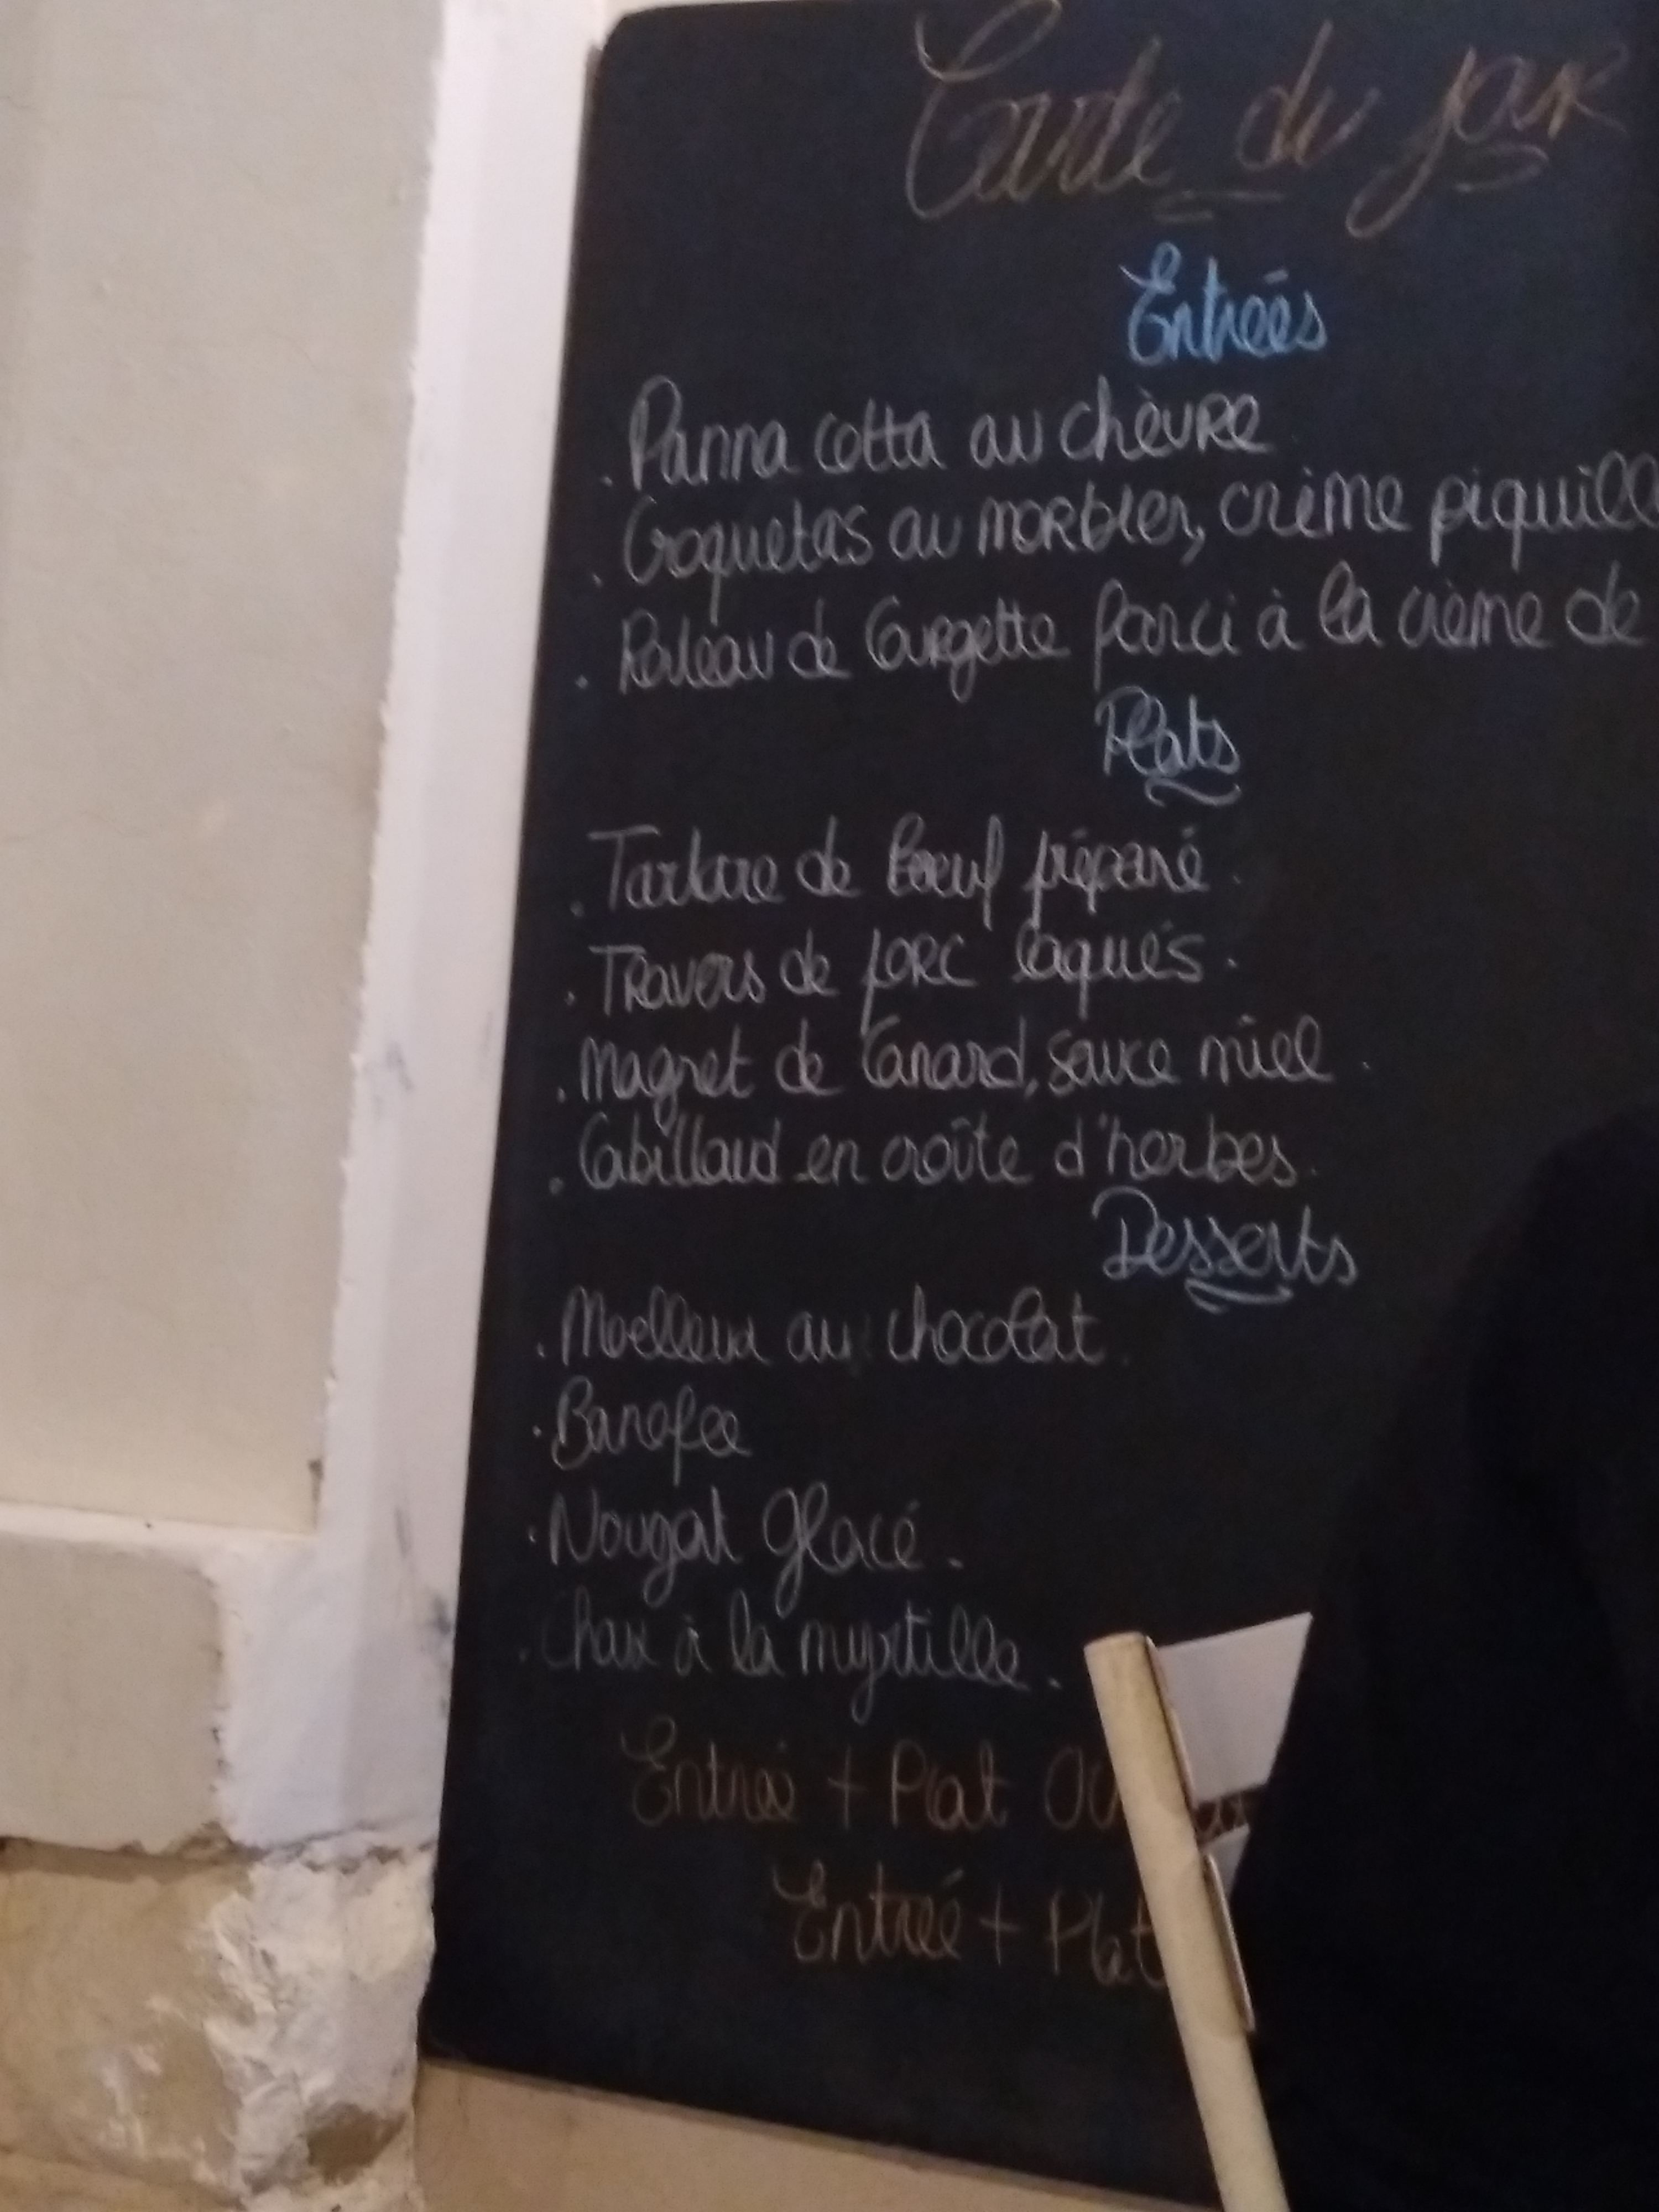 Carte du jour
Entrées
. Panna cotta au chèvre
. Croquetas au morbier, crème piquill
. Rouleau de Courgette farci à la crème de
Plats
. Tartare de boeuf préparé.
. Travers de porc laqués.
. Magret de Canard, sauce miel.
. Cabillaud en croûte d'herbes.
Desserts
. Moelleux au chocolat.
. Banofee
. Nougat glacé.
. Choux à la myrtille.
Entrée + Plat Ou
Entrée + Plat